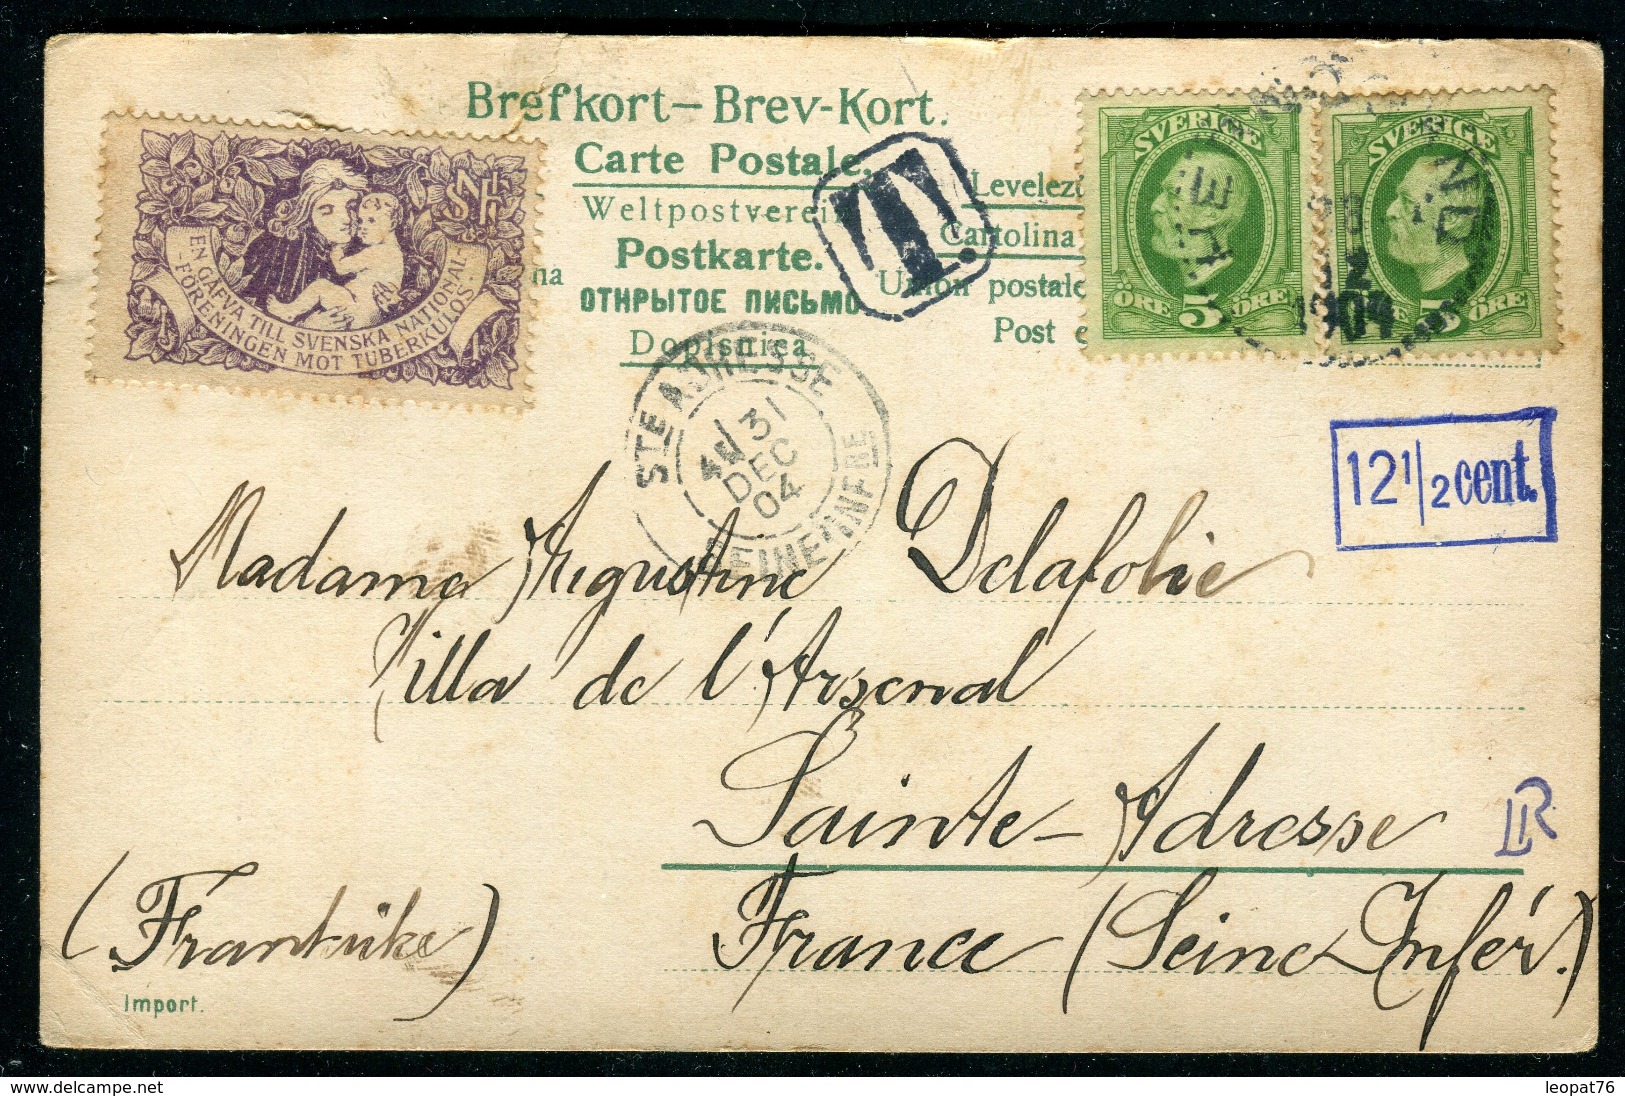 Brefkort — Brev-Kort.
Carte Postale.
Weltpostverein
Postkarte.
ОТКРЫТОЕ ПИСЬМО
Dopisnica
na
Levelező
Cartolina
Union postale
Post
T.
SN
EN GÅFVA TILL SVENSKA NATIONAL-
-FÖRENINGEN MOT TUBERKULOS.
SVERIGE
ÖRE 5 ÖRE
SVERIGE
5 ÖRE
12
1904
STE ADRESSE
31
DEC
04
SEINE INFRE
12 1/2 cent.
Madame Augustine Delafolie
Villa de l'Arsenal
Sainte-Adresse
France (Seine Infér.)
(Frankrike)
Import.
leopat76
http://www.delcampe.net